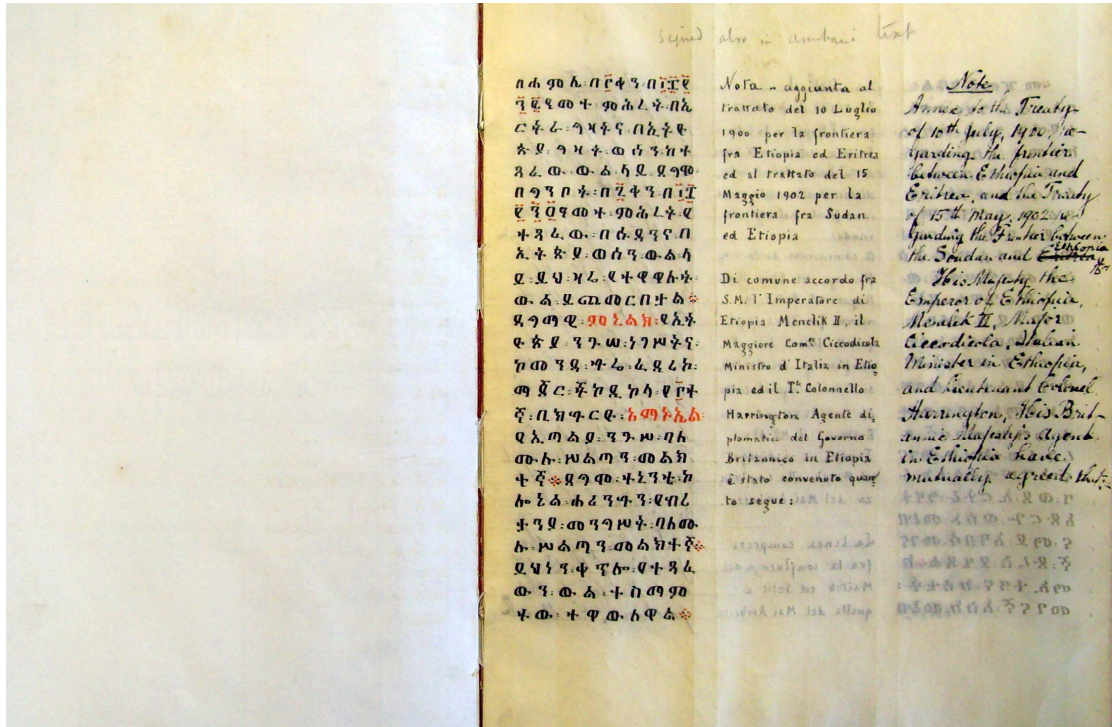 signed also in amharic text
በሐምሌ፡በ፲ቀን፡በ፲፱፻
ዓመት፡ምሕረት፡በኤ
ርትራ፡ግዛትና፡በኢትዮ
ጵያ፡ግዛት፡ወሰን፡ከተ
ጻፈው፡ውል፡ላይ፡ደግሞ፡
በግንቦት፡በ፯ቀን፡በ፲፱
ዓመት፡ምሕረት፡የ
ተጻፈው፡በሱዳንና፡በ
ኢትዮጵያ፡ወሰን፡ውል፡ላ
ይ፡ይህ፡ዛሬ፡የተዋዋሉት፡
ውል፡ይጨመርበታል።
ዳግማዊ፡ምኒልክ፡የኢት
ዮጵያ፡ንጉሠ፡ነገሥትና፡
ማጆር፡
አማኑኤል፡
የኢጣልያ፡ንጉሥ፡ባለ
ሙሉ፡ሥልጣን፡መልክ
ተኛ።ደግሞ፡ተኔንቴ፡ኮ
ሎኔል፡ሐሪንግን፡የብሪ
ታንያ፡መንግሥት፡ባለሙ
ሉ፡ሥልጣን፡መልክተኛ።
ይህነን፡የተጻፈ
ውን፡ውል፡ተስማም
ተው፡ተዋውለዋል።
Nota - aggiunta al
trattato del 10 Luglio
1900 per la frontiera
fra Etiopia ed Eritrea
ed al trattato del 15
Maggio 1902 per la
frontiera fra Sudan
ed Etiopia
Di comune accordo fra
S.M. l'Imperatore di
Etiopia Menelik II, il
Maggiore Comm. Ciccodicola
Ministro d'Italia in Etio
pia ed il T. Colonnello
Harrington Agente di
plomatico del Governo
Britannico in Etiopia
è stato convenuto quan
to segue:
Note
Annex to the Treaty
of 10th July, 1900, re-
garding the frontier
between Ethiopia and
Eritrea, and the Treaty
of 15th May, 1902 re-
garding the Frontier between
the Soudan and Eritrea Ethiopia
His Majesty the
Emperor of Ethiopia,
Menelik II, Major
Ciccodicola, Italian
Minister in Ethiopia,
and Lieutenant Colonel
Harrington, His Brit-
annic Majesty's Agent
in Ethiopia have
mutually agreed that:-